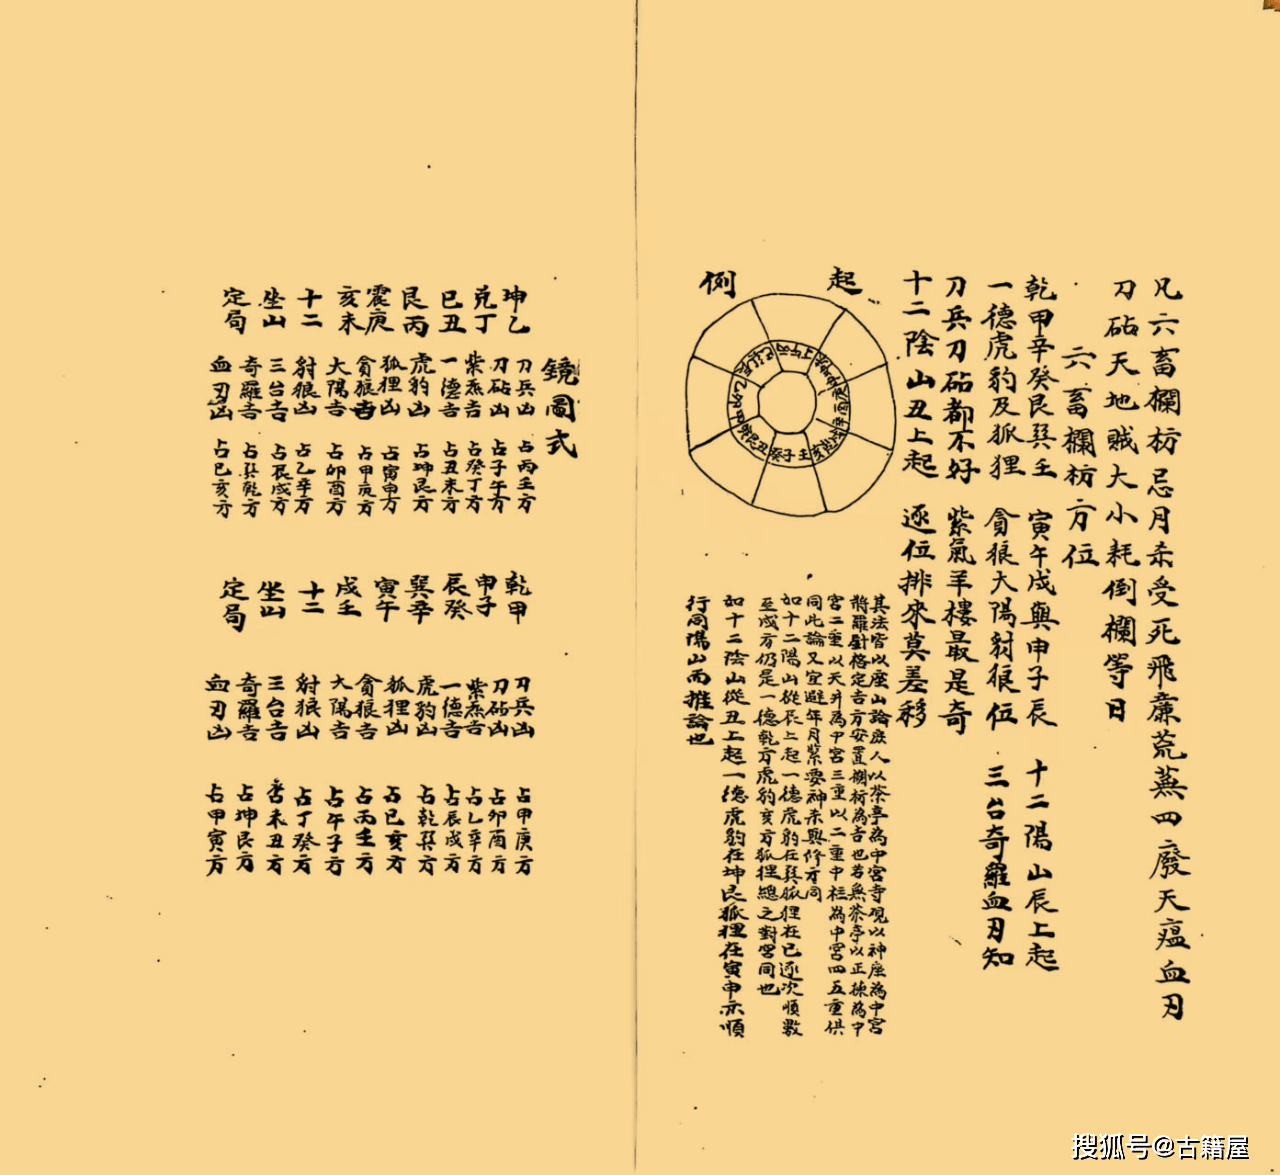 凡六畜欄枋忌月未受死飛廉荒蕪四廢天瘟血刃
刀砧天地賊大小耗倒欄等日
六畜欄枋方位
乾甲辛癸艮巽壬 寅午戌與申子辰 十二陽山辰上起
一德虎豹及狐狸 貪狼大陽豺狼位 三台奇羅血刃知
刀兵刀砧都不好 紫氣羊棧最是奇
十二陰山丑上起 逐位排來莫差移
起例
其法皆以座山論庶人以茶亭為中宮寺观以神座為中宮
將羅對格定吉方安置欄枋為吉也若無茶亭以正棟為中
宮二重以天井為中宮三重以二重中柱為中宮四五重俱
同此論又宜避年月紧要神未與修方同
如十二陽山從辰上起一德虎豹在巽狐狸在巳逐次順數
至戌方仍是一德乾方虎豹亥方狐狸總之對宮同也
如十二陰山從丑上起一德虎豹在坤艮狐狸在寅申亦順
行同陽山而推論也
鏡圖式
坤乙 兌丁 巳丑 艮丙 震庚 亥未 十二 坐山 定局
刀兵凶 占丙壬方
刀砧凶 占子午方
紫燕吉 占癸丁方
一德吉 占丑未方
虎豹凶 占坤艮方
狐狸凶 占寅申方
貪狼吉 占甲庚方
大陽吉 占卯酉方
豺狼凶 占乙辛方
三台吉 占辰戌方
奇羅吉 占巽乾方
血刃凶 占巳亥方
乾甲 申子 辰癸 巽辛 寅午 戌壬 十二 坐山 定局
刀兵凶 占甲庚方
刀砧凶 占卯酉方
紫燕吉 占乙辛方
一德吉 占辰戌方
虎豹凶 占乾巽方
狐狸凶 占巳亥方
貪狼吉 占丙壬方
大陽吉 占午子方
豺狼凶 占丁癸方
三台吉 占未丑方
奇羅吉 占坤艮方
血刃凶 占甲寅方
搜狐号@古籍屋